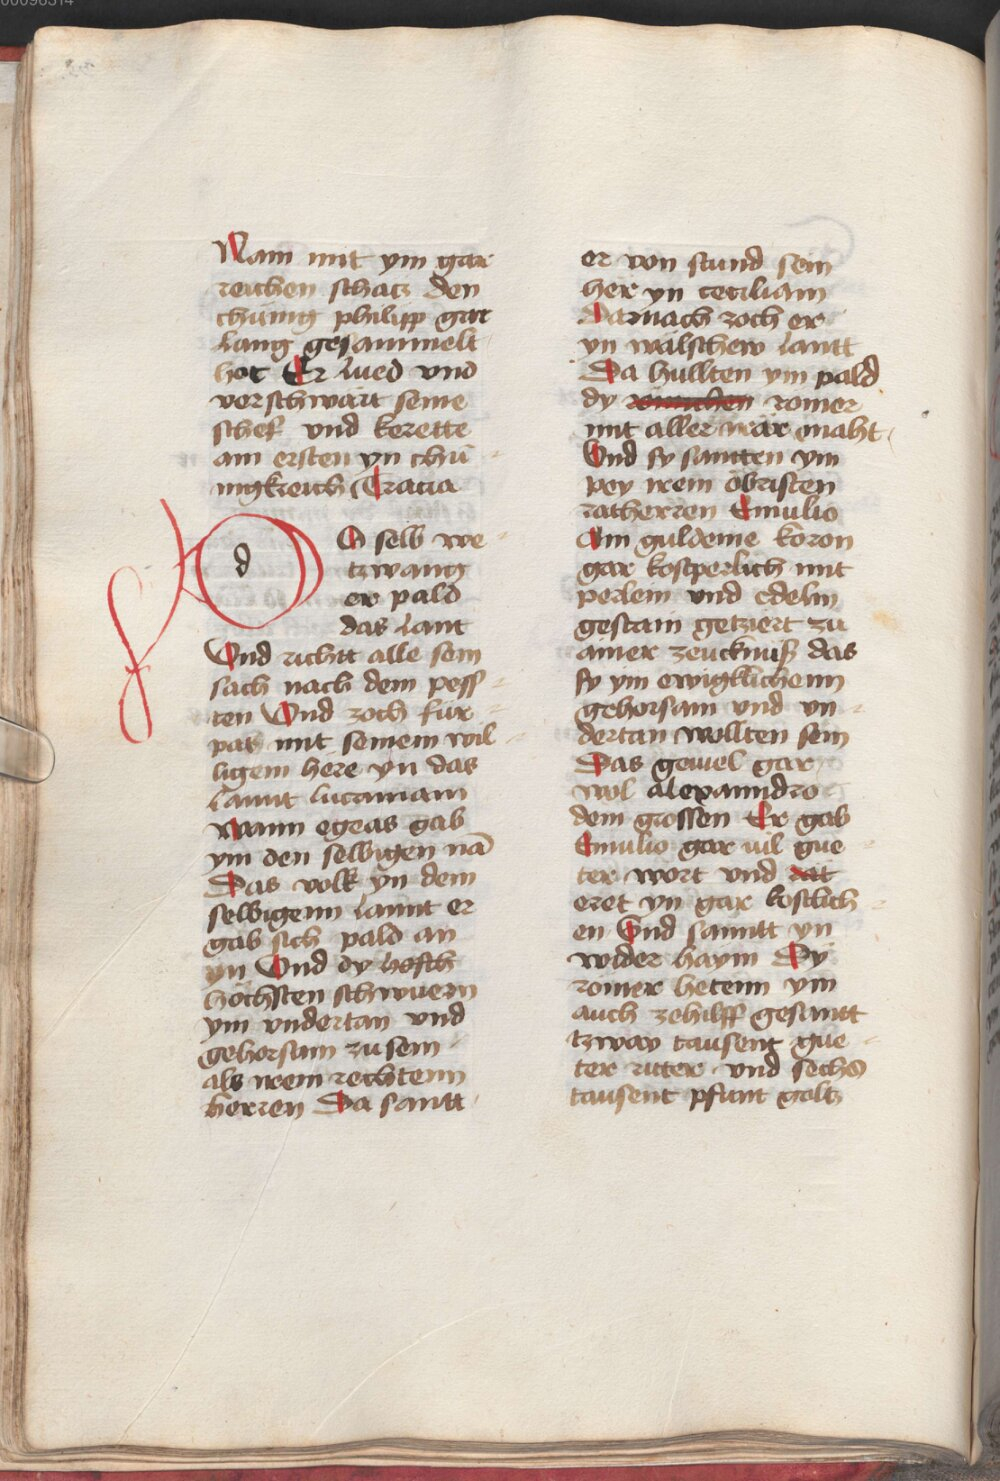 00098314
Nam mit ym gar
reichen schatz den
chünig philipp gar
lang gesammelt
het Er lued vnd
verschwärt seine
schef vnd kerette
am ersten yn chü
nigkreich Tracia
d O selb we
tzwang
er pald
das lant
Vnd richtt alle sein
sach nach dem pess
ten Vnd zoch für
pas mit seinem wil
ligem here yn das
lannt lucaniam
wann egeas gab
ym den selbigen nā
Das volk yn dem
selbigenn lannt er
gab sich pald an
yn Vnd dy
höchsten schwuern
ym vndertan vnd
gehorsam zu sein
als irem rechtenn
herren Da santt
er von stund sein
her yn ceciliam
Darnach zoch er
yn wälschew lantt
Da hullten ym pald
dy römer
mit aller irär maht
Vnd sy sannten ym
pey irem öbristen
ratherren Emulio
Ain guldeine koron
gar kostperlich mit
perlein vnd edelm
gestain getziert zu
ainer zeucknuß das
sy ym ewigklichenn
gehorsam vnd vn
dertan wollten sein
Das geuiel gar
wol alexanndro
dem grossen Er gab
Emulio gar uil gue
ter wort vnd
eret yn gar kostlich
en Vnd sanntt yn
wider haym Dy
römer hetenn ym
auch zehilff gesantt
tzway tausent gue
ter ritter vnd sechs
tausent pfunt goltz